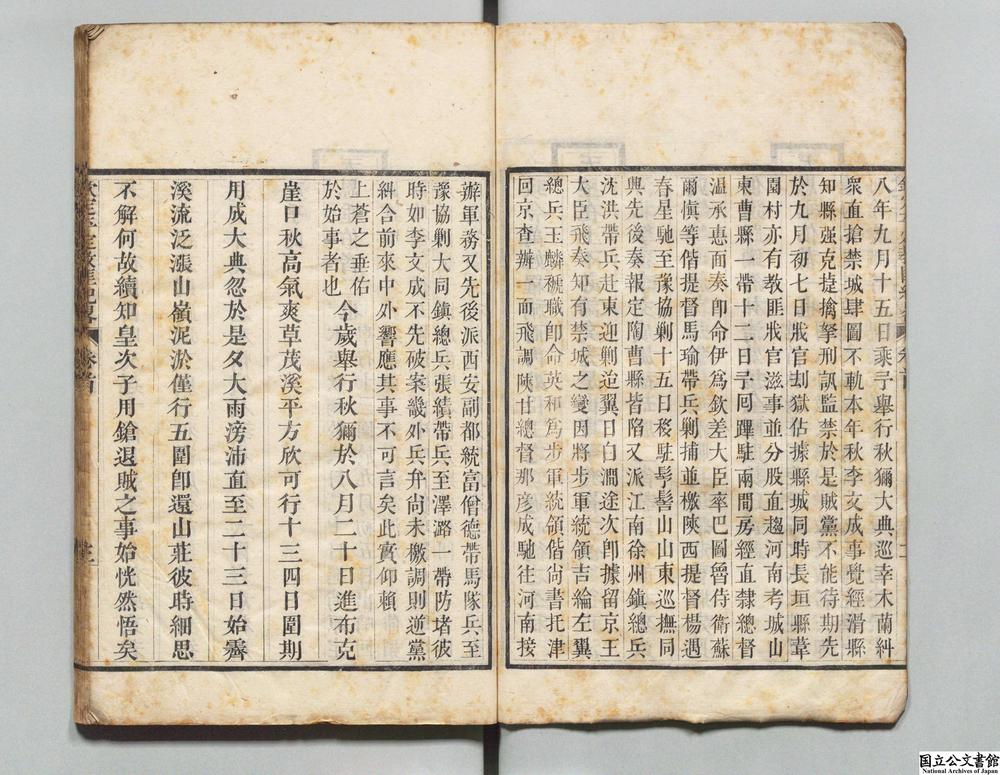 八年九月十五日乘予舉行秋獮大典巡幸木蘭糾
眾直搶禁城肆圖不軌本年秋李文成事覺經滑縣
知縣强克㨗擒拏刑訊監禁於是賊黨不能待期先
於九月初七日戕官刦獄佔據縣城同時長垣縣葦
園村亦有教匪戕官滋事並分股直趨河南考城山
東曹縣一帶十二日予囘蹕駐兩間房經直隸總督
温承惠面奏卽命伊爲欽差大臣率巴圖魯侍衞蘇
爾愼等偕提督馬瑜帶兵剿捕並檄陝西提督楊遇
春星馳至豫協剿十五日移駐髽髻山山東巡撫同
興先後奏報定陶曹縣皆陷又派江南徐州鎭總兵
沈洪帶兵赴東迎剿迨翼日白澗途次卽據留京王
大臣飛奏知有禁城之變因將步軍統領吉綸左翼
總兵玉麟褫職卽命英和爲步軍統領偕尙書托津
回京查辦一面飛調陝甘總督那彦成馳往河南接
辦軍務又先後派西安副都統富僧德帶馬隊兵至
豫協剿大同鎭總兵張績帶兵至澤潞一帶防堵彼
時如李文成不先破案畿外兵弁尙未檄調則逆黨
糾合前來中外響應其事不可言矣此實仰賴
上蒼之垂佑
於始事者也今歲舉行秋獮於八月二十日進布克
崖口秋高氣爽草茂溪平方欣可行十三四日圍期
用成大典忽於是夕大雨滂沛直至二十三日始霽
溪流泛漲山嶺泥淤僅行五圍卽還山莊彼時細思
不解何故續知皇次子用鎗退賊之事始恍然悟矣
卷首
國立公文書館
National Archives of Japan